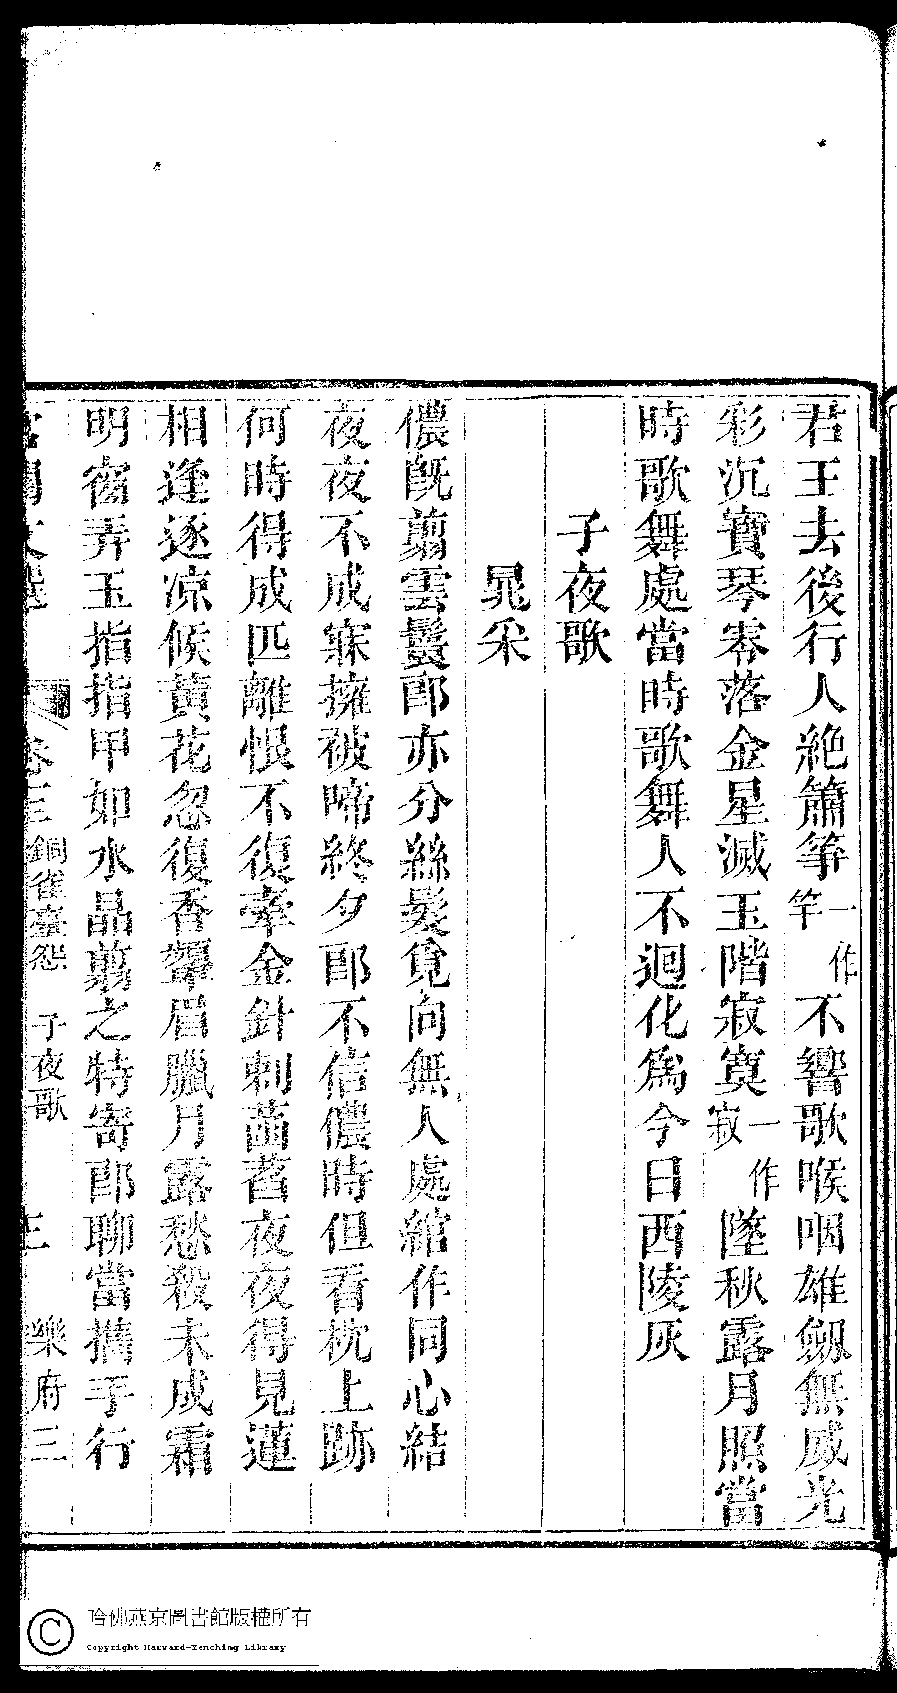 君王去後行人絶簫筝一作竿不響歌喉咽雄劔無威光
彩沉寶琴零落金星滅玉階寂寞一作寂墜秋露月照當
時歌舞處當時歌舞人不迴化爲今日西陵灰
子夜歌
晁采
儂旣翦雲鬟郎亦分絲髮覓向無人處綰作同心結
夜夜不成寐擁被啼終夕郎不信儂時但看枕上跡
何時得成匹離恨不復牽金針刺菡萏夜夜得見蓮
相逢逐凉候黄花忽復香顰眉臘月露愁殺未成霜
明窗弄玉指指甲如水晶翦之特寄郎聊當攜手行
宮閨文選 卷三 銅雀臺怨 子夜歌 三 樂府三
哈佛燕京圖書館版權所有
Copyright Harvard-Yenching Library